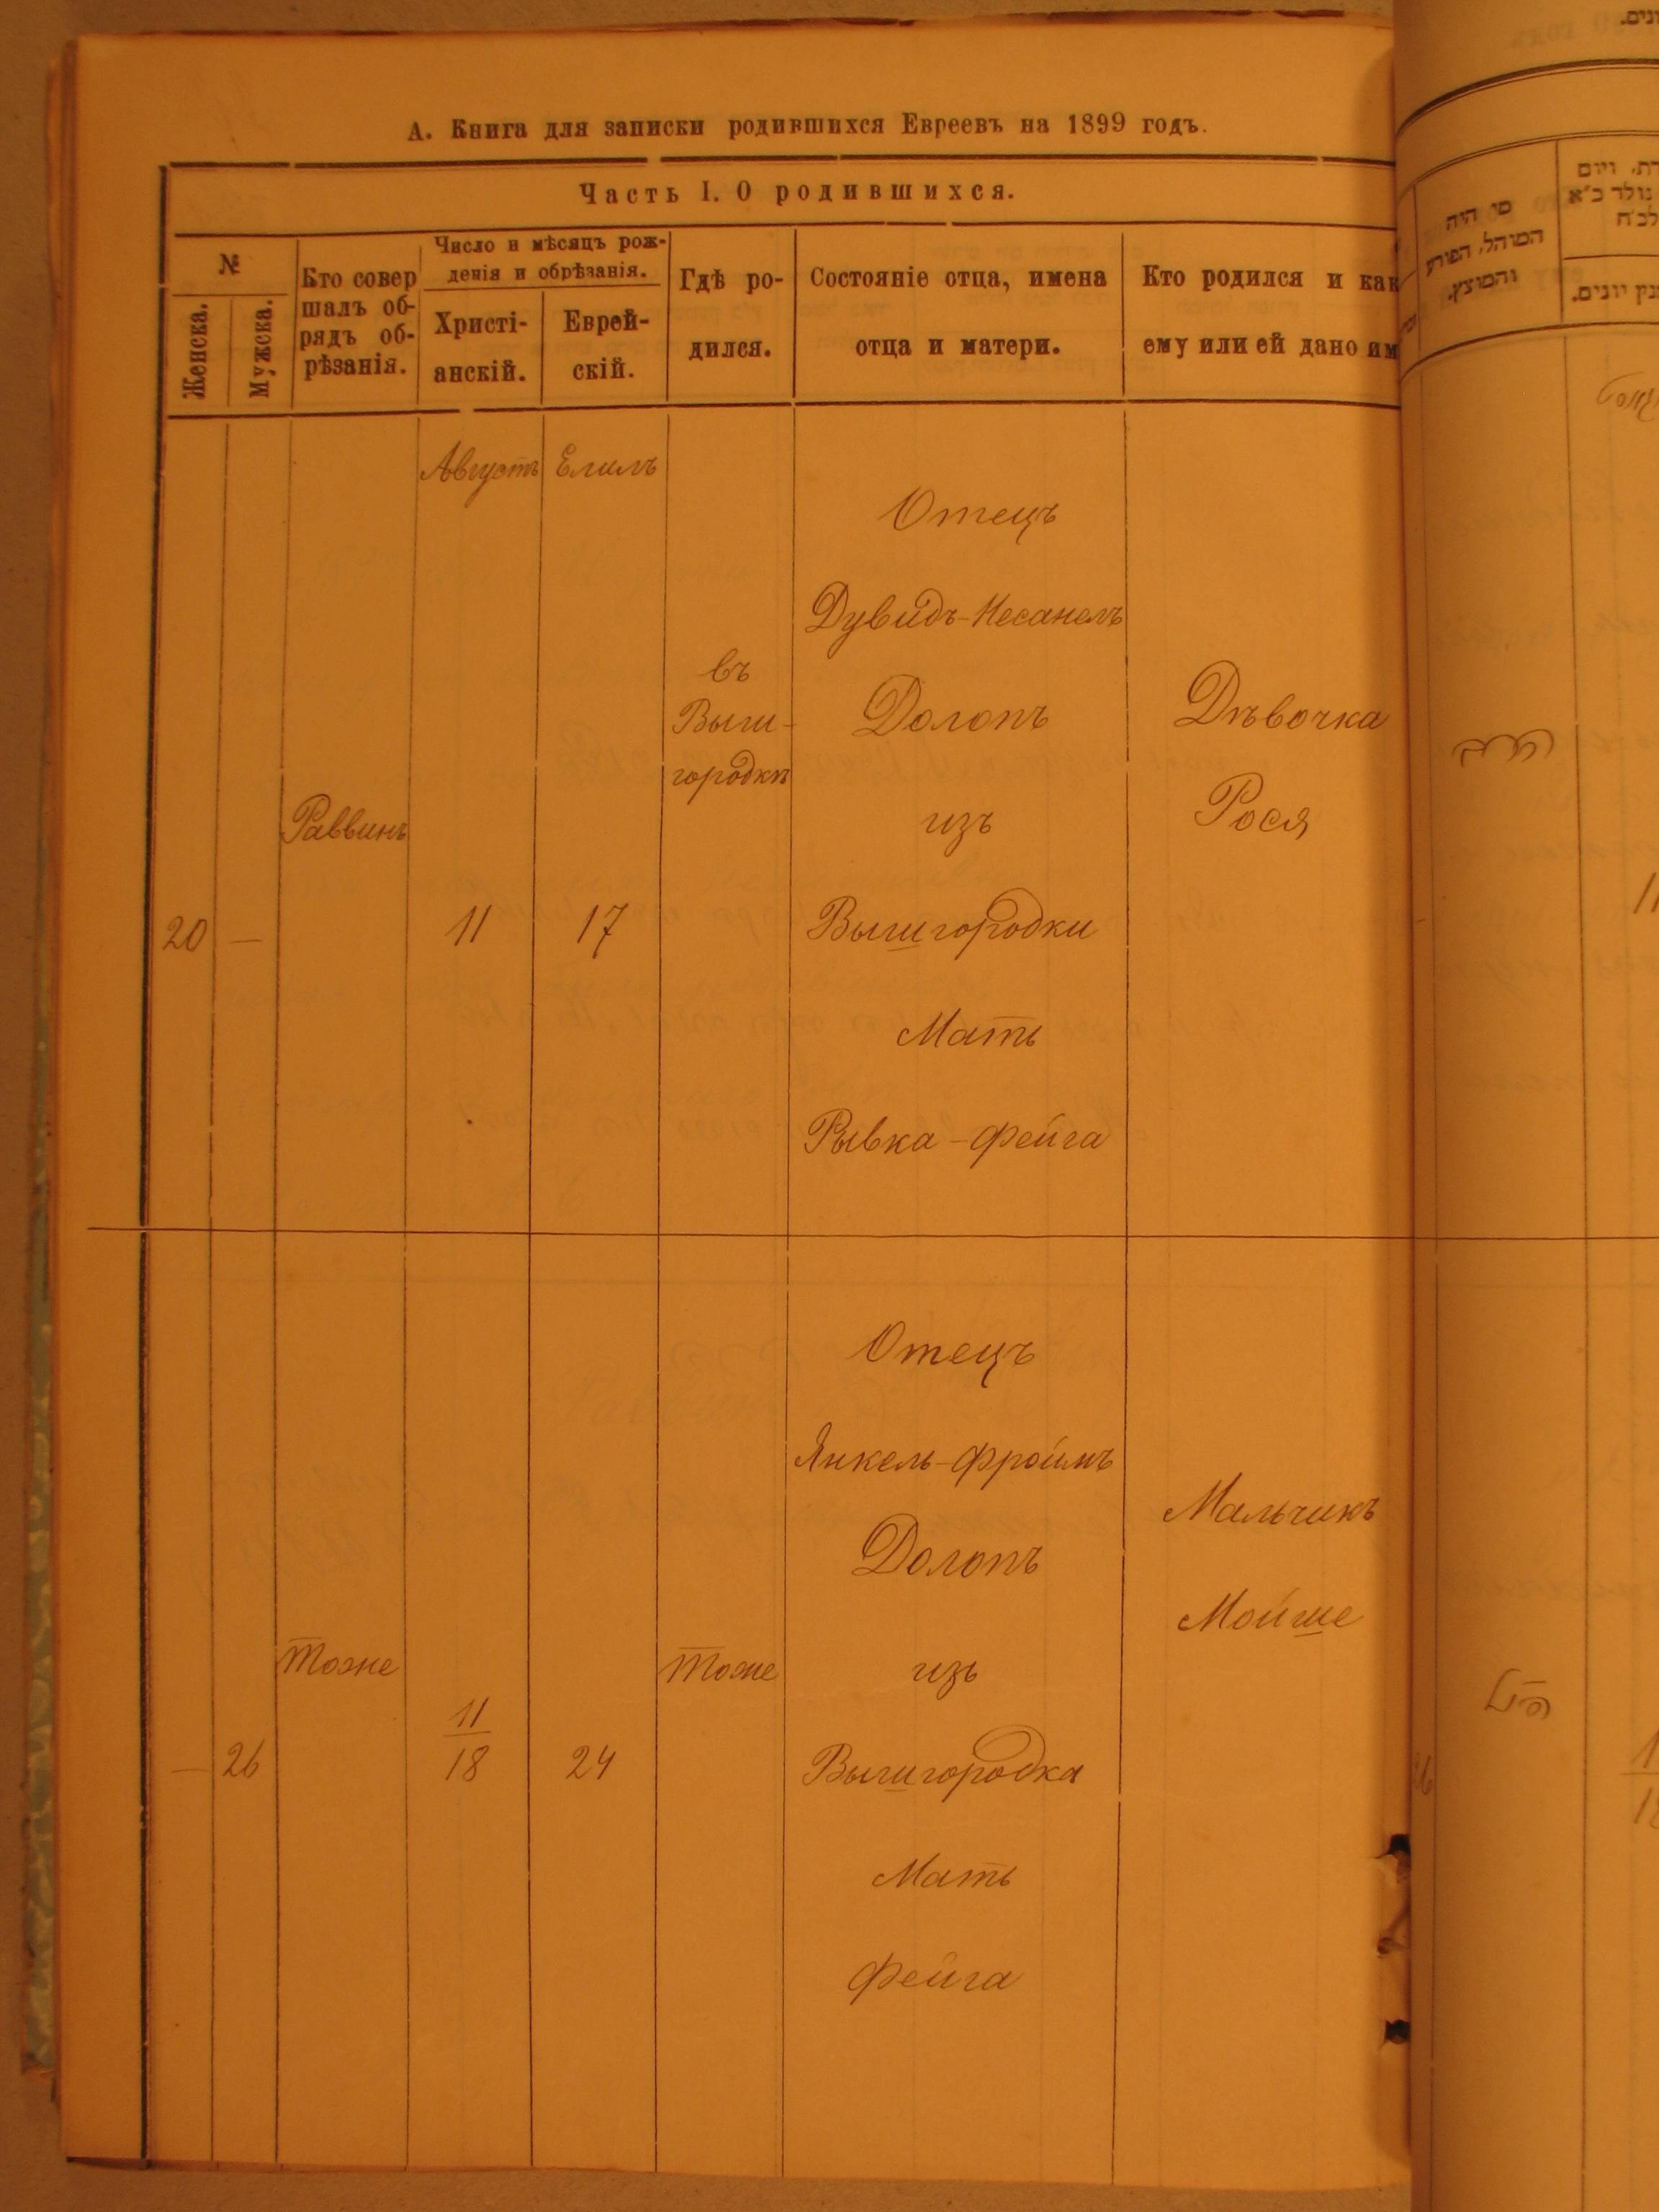 А. Книга для записки родившихся Евреевъ на 1899 годъ.
Часть I. О родившихся.
№
Женска.
Мужска.
Кто совер
шалъ об-
рядъ об-
рѣзанія.
Число и мѣсяцъ рож-
денія и обрѣзанія.
Христі-
анскій.
Еврей-
скій.
Гдѣ ро-
дился.
Состояніе отца, имена
отца и матери.
Кто родился и как
ему или ей дано им
Августъ
Елилъ
20
—
Раввинъ
11
17
въ
Выши-
городкѣ
Отецъ
Дувидъ-Несанелъ
Долопъ
изъ
Вышгородки
Мать
Рывка-Фейга
Дѣвочка
Рося
—
26
Тоже
11
18
24
Тоже
Отецъ
Янкель-Фроимъ
Долопъ
изъ
Вышгородка
Мать
Фейга
Мальчикъ
Мойше
מי היה
המוהל, הפורע
והמוצץ.